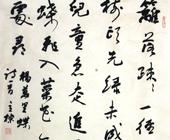 籬落疎々一徑
樹頭綠未成
兒童急走追
蝶飛入菜花
處尋
楊萬里
詩